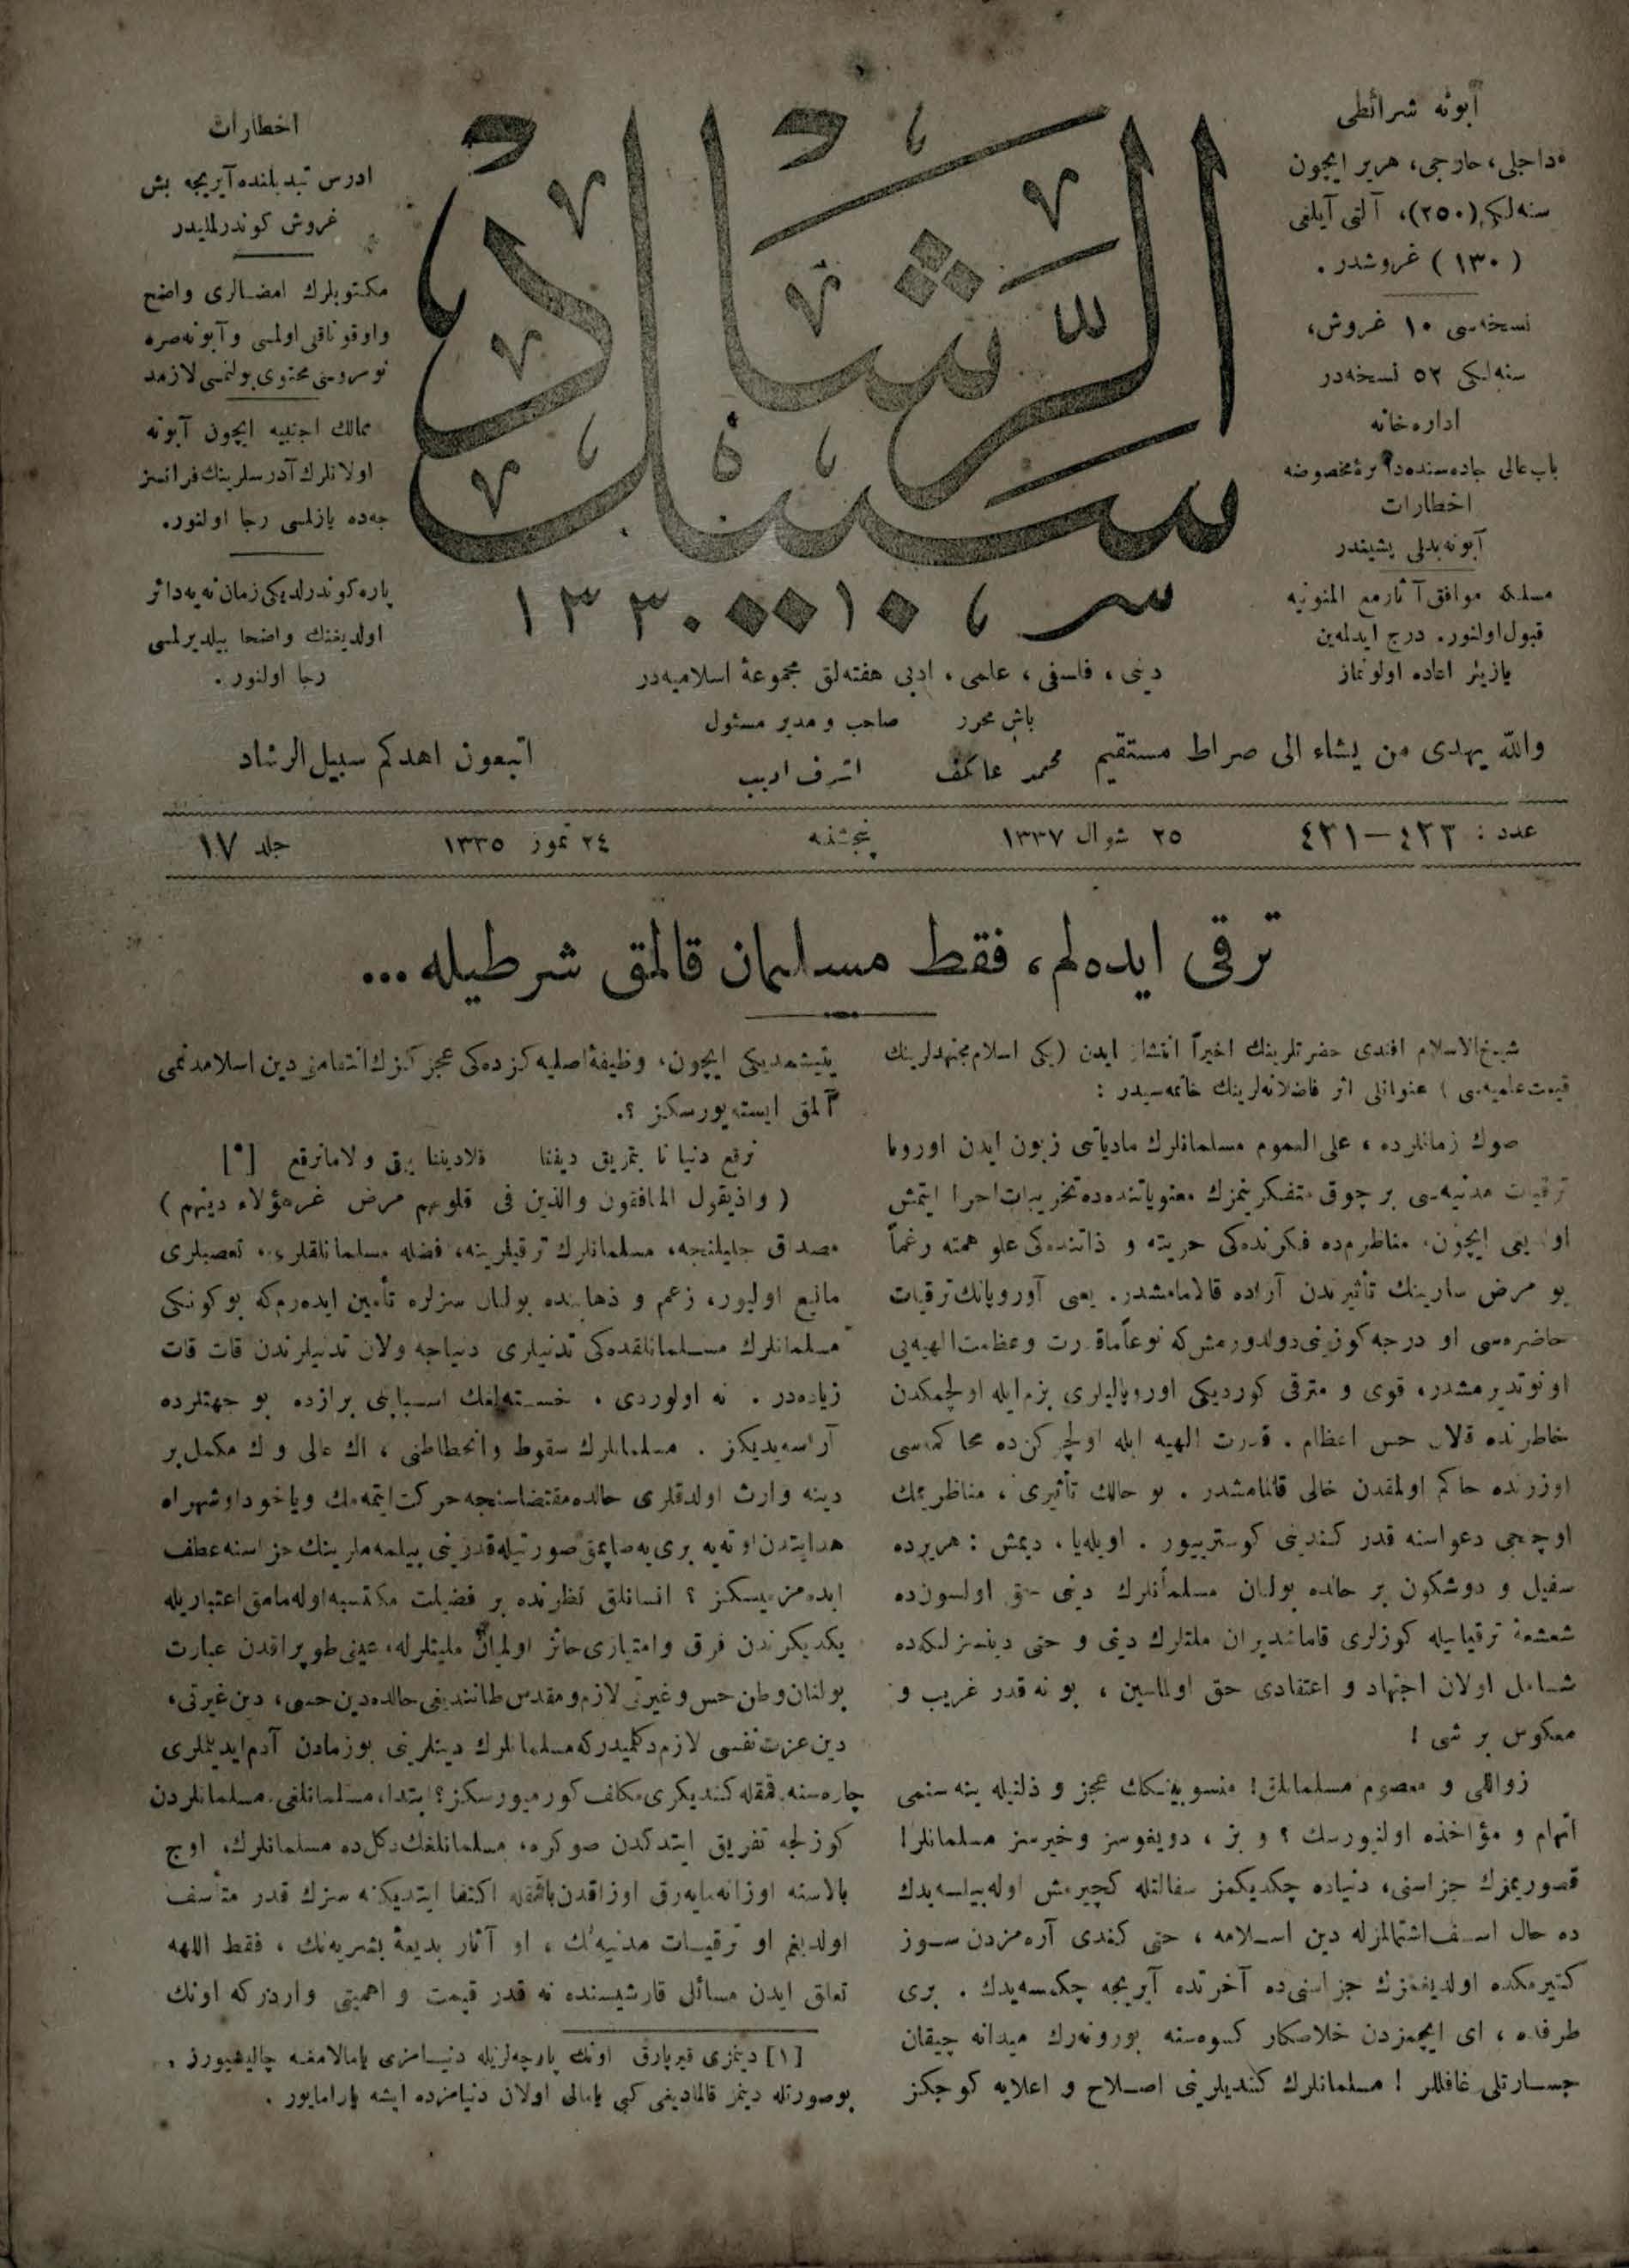 آبونه شرائطی
داخلی، خارجی، هر یر ایچون
سنه‌لکی (٢٥٠)، آلتی آیلغی
(١٣٠) غروشدر .
نسخه‌سی ١٠ غروش،
سنه‌لکی ٥٢ نسخه‌در
اداره‌خانه
باب عالی جاده‌سنده دائرهٔ مخصوصه
اخطارات
آبونه بدلی پشیندر
مسلکه موافق آثار مع الممنونیه
قبول اولنور. درج ایدلمه‌ین
یازیلر اعاده اولونماز
سبیل الرشاد
سر ١٠ ١٣٣٠
دینی ، فلسفی ، علمی ، ادبی هفته‌لق مجموعهٔ اسلامیه‌در
باش محرر
صاحب و مدیر مسئول
محمد عاکف
اشرف ادیب
اخطارات
ادرس تبدیلنده آیریجه بش
غروش کوندرلملیدر
مکتوبلرك امضالری واضح
واوقوناقلی اولمسی و آبونه صره
نومروسنی محتوی بولنمسی لازمدر
ممالك اجنبیه ایچون آبونه
اولانلرك آدرسلرینك فرانسز
جه‌ده یازلمسی رجا اولنور.
پاره کوندرلدیکی زمان نه‌یه دائر
اولدیغنك واضحا بیلدیرلمسی
رجا اولنور .
والله یهدی من یشاء الی صراط مستقیم
اتبعون اهدکم سبیل الرشاد
عدد : ٤٢٢—٤٢١
٢٥ شوال ١٣٣٧
پنجشنبه
٢٤ تموز ١٣٣٥
جلد ١٧
ترقی ایده‌لم، فقط مسلمان قالمق شرطیله...
شیخ‌الاسلام افندی حضرتلرینك اخیراً انتشار ایدن (یکی اسلام مجتهدلرینك
قیمت علمیه‌سی) عنوانلی اثر فاضلانه‌لرینك خاتمه‌سیدر :
صوك زمانلرده ، علی العموم مسلمانلرك مادیاتنی زبون ایدن اوروپا
ترقیات مدنیه‌سی بر چوق متفکرینمزك معنویاتنده‌ده تخریبات اجرا ایتمش
اولدیغی ایچون، مناظرم‌ده فکرنده‌کی حریته و ذاتنده‌کی علو همته رغماً
بو مرض سارینك تأثیرندن آزاده قالامامشدر. یعنی آوروپانك ترقیات
حاضره‌سی او درجه کوزینی دولدورمش که نوعاما قدرت وعظمت الهیه‌یی
اونوتدیرمشدر، قوی و مترقی کوردیکی اوروپالیلری بزم ایله اولچمکدن
خاطرنده قلان حس اعظام . قدرت الهیه ایله اولچرکن‌ده محاکمه‌سی
اوزرنده حاکم اولمقدن خالی قالمامشدر . بو حالك تأثیری ، مناظریمك
اوچنجی دعواسنه قدر کندینی کوسترییور . اویله‌یا ، دیمش : هریرده
سفیل و دوشکون بر حالده بولنان مسلمانلرك دینی حق اولسون‌ده
شعشعهٔ ترقیاتیله کوزلری قاماشدیران ملتلرك دینی و حتی دینسزلکه‌ده
شامل اولان اجتهاد و اعتقادی حق اولماسین ، بو نه قدر غریب و
معکوس بر شی !
زواللی و معصوم مسلمانلق! منسوبینکك عجز و ذلتیله ینه سنمی
اتهام و مؤاخذه اولنیورسك ؟ و بز ، دویغوسز وخبرسز مسلمانلر!
قصوریمزك جزاسنی، دنیاده چکدیکمز سفالتله کچیرمش اوله‌بیلسه‌یدك
ده حال اسف اشتمالمزله دین اسلامه ، حتی کندی آره‌مزدن سوز
کتیرمکده اولدیغمزك جزاسنی‌ده آخرتده آیریجه چکمسه‌یدك . بری
طرفده ، ای ایچمزدن خلاصکار کسوه‌سنه بورونه‌رك میدانه چیقان
جسارتلی غافللر ! مسلمانلرك کندیلرینی اصلاح و اعلایه کوجکز
یتیشمدیکی ایچون، وظیفهٔ اصلیه‌کزده‌کی عجزکزك انتقامنی دین اسلامدنمی
آلمق ایسته‌یورسکز ؟.
نرقع دنیانا بتمزیق دیننا فلادیننا یبقی ولامانرقع [٠]
(واذیقول المنافقون والذین فی قلوبهم مرض غر هؤلاء دینهم)
مصداق جلیلنجه، مسلمانلرك ترقیلرینه، فضله مسلمانلقلری، تعصبلری
مانع اولیور، زعم و ذهابنده بولنان سزلره تأمین ایده‌رم که بوکونکی
مسلمانلرك مسلمانلقده‌کی تدنیلری دنیاجه اولان تدنیلرندن قات قات
زیاده‌در . نه اولوردی ، خسته‌لغك اسبابنی برازده بو جهتلرده
آراسه‌یدیکز . مسلمانلرك سقوط وانحطاطنی ، اك عالی و اك مکمل بر
دینه وارث اولدقلری حالده مقتضاسنجه حرکت ایتمه‌مك ویاخود او شهراه
هدایتدن اوته‌یه بری‌یه صاپمق صورتیله قدرینی بیلمه‌ملرینك جزاسنه عطف
ایده‌مزمیسکز ؟ انسانلق نظرنده بر فضیلت مکتسبه اوله‌مامق اعتباریله
یکدیکرندن فرق وامتیازی حائز اولمیان ملیتلرله، عینی طوپراقدن عبارت
بولنان وطن حس وغیرتی لازم و مقدس طانندیغی حالده دین حسی، دین غیرتی،
دین عزت نفسی لازم دکلمیدرکه مسلمانلرك دینلرینی بوزمادن آدم ایدیلملری
چاره‌سنه باقمقله کندیکزی مکلف کورمیورسکز؟ ابتدا، مسلمانلغی مسلمانلردن
کوزلجه تفریق ایتدکدن صوکره، مسلمانلغك دکل‌ده مسلمانلرك، اوج
بالاسنه اوزانه‌مایه‌رق اوزاقدن باقمقله اکتفا ایتدیکنه سزك قدر متأسف
اولدیغم او ترقیات مدنیه‌نك ، او آثار بدیعهٔ بشریه‌نك ، فقط اللهه
تعلق ایدن مسائل قارشیسنده نه قدر قیمت و اهمیتی واردرکه اونك
[١] دینمزی قیرپارق اونك پارچه‌لریله دنیامزی یامالامغه چالیشیورز ،
بوصورتله دینمز قالمادیغی کبی یامالی اولان دنیامزده ایشه یارامایور .